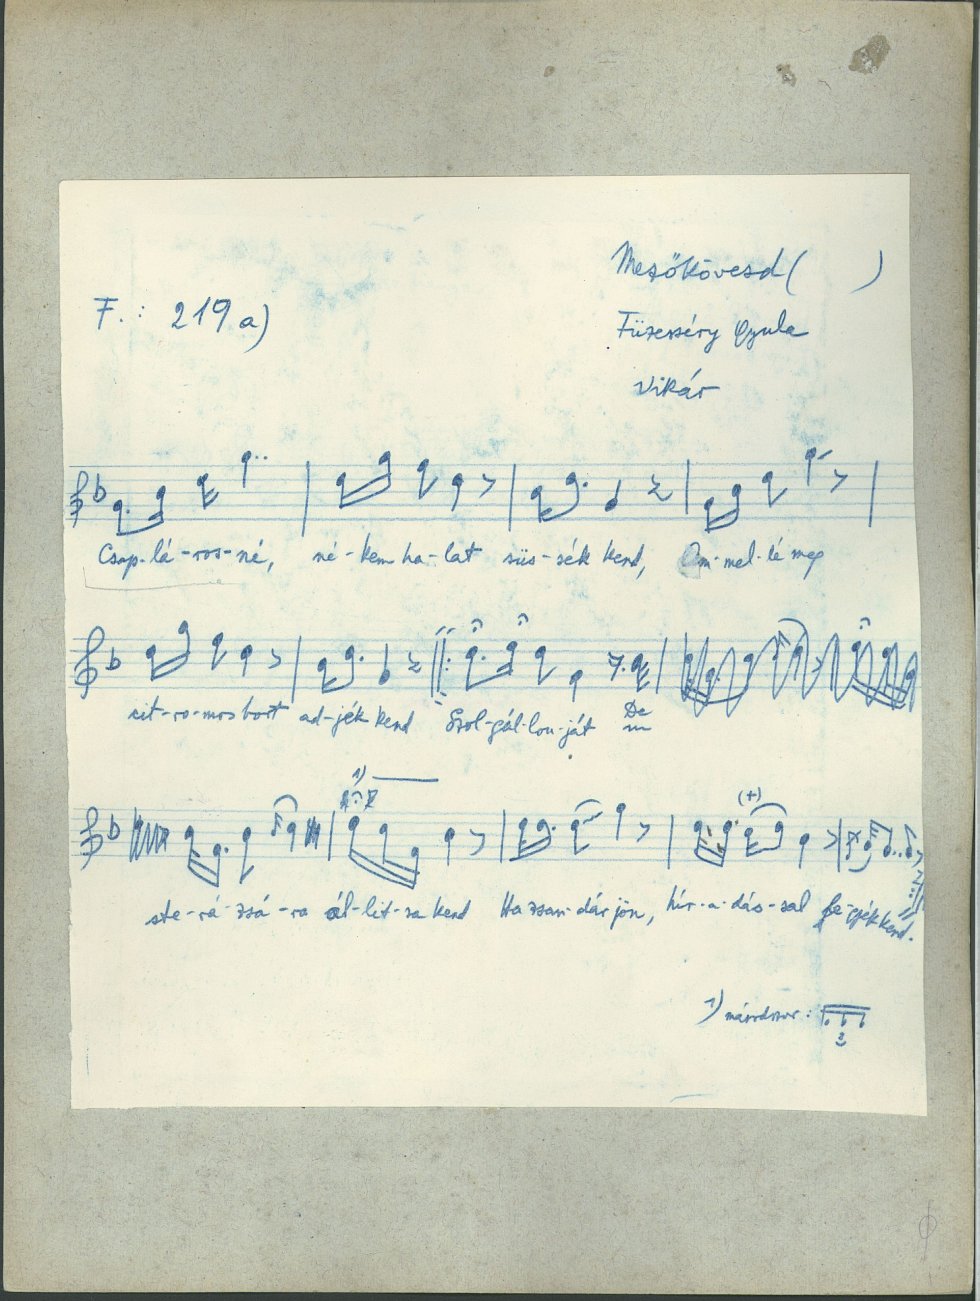 Mezőkövesd ( )
F.: 219 a)
Füzesséry Gyula
Vikár
Csap-lá-ros-né, né-kem ha-lat süs-sék kend, Em-mel-lé meg
cit-ro-mos bort ad-jék kend Szol-gál-lou-ját De
ste-rá-zsá-ra ál-lit-sa kend Ha zsan-dár jön, hír-a-dás-sal le-gyék kend.
(+)
1)
1) másodszor:
2